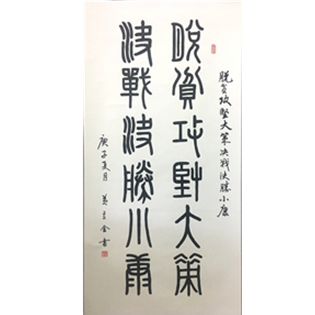 脱贫攻堅大策决战决勝小康
脫貧攻堅大策
決戰決勝小康
庚子夏月 金書